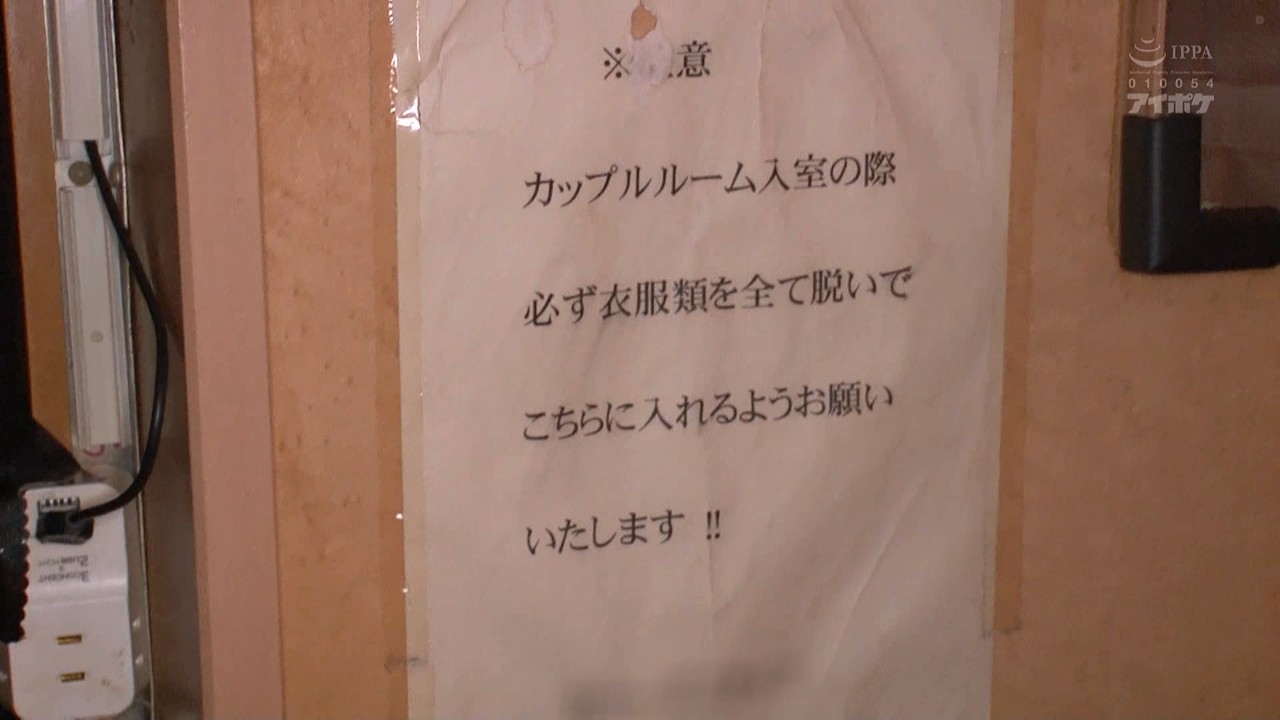 ※ 意
カップルルーム入室の際
必ず衣服類を全て脱いで
こちらに入れるようお願い
いたします !!
IPPA
010054
アイポケ